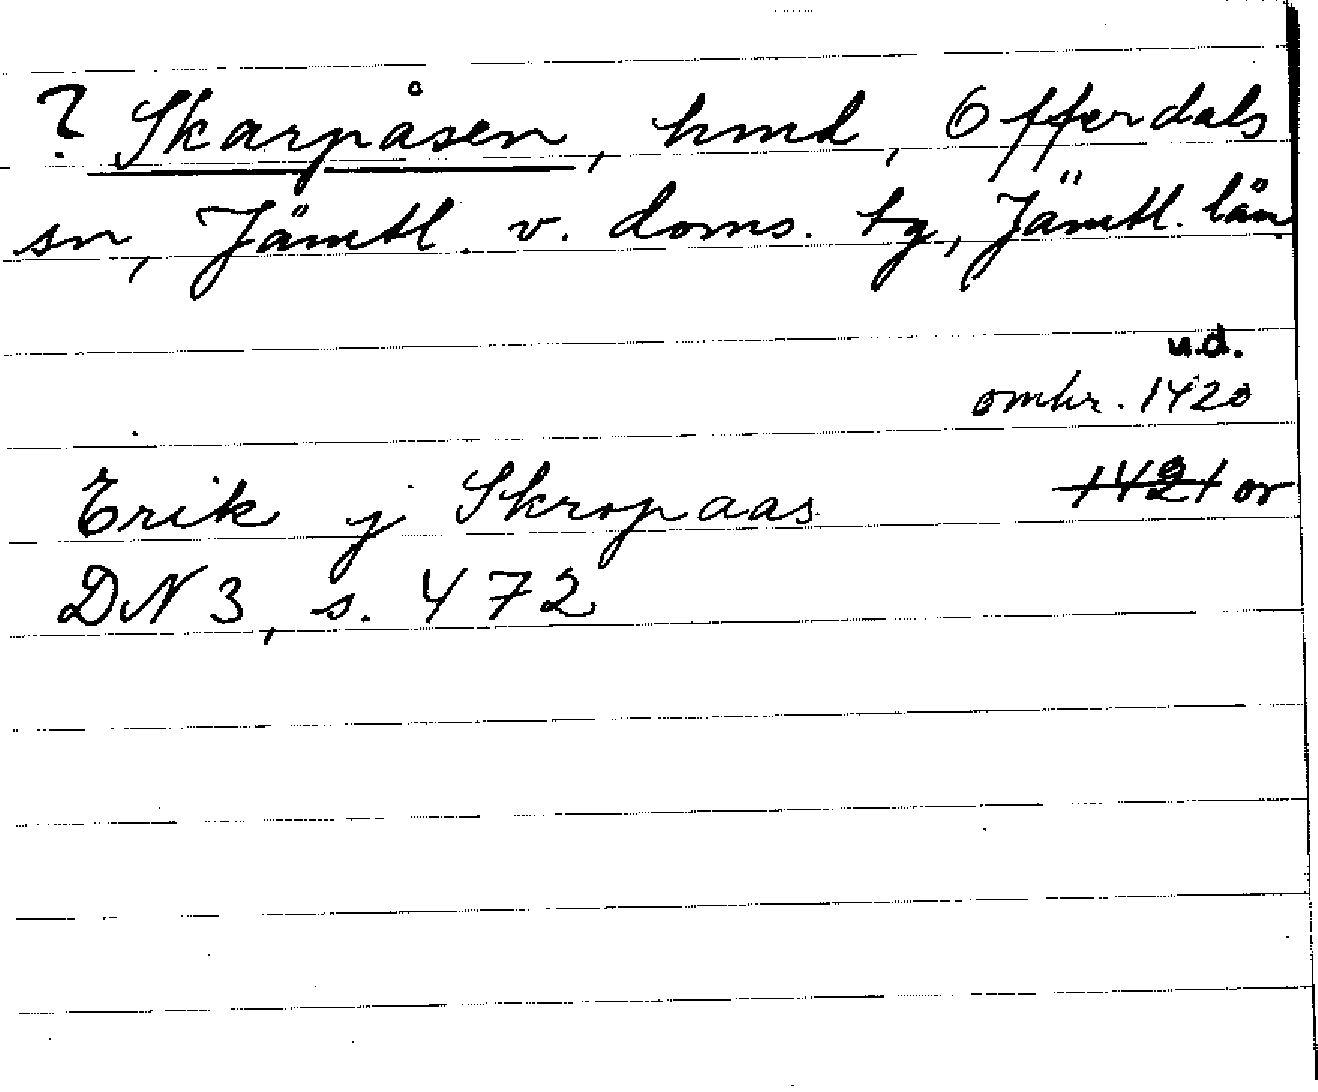 ? Skarpåsen, hmd, Offerdals
sn, Jämtl. v. doms. tg, Jämtl. län
u.d.
omkr. 1420
Erik j Skropaas 1421 or
DN 3, s. 472